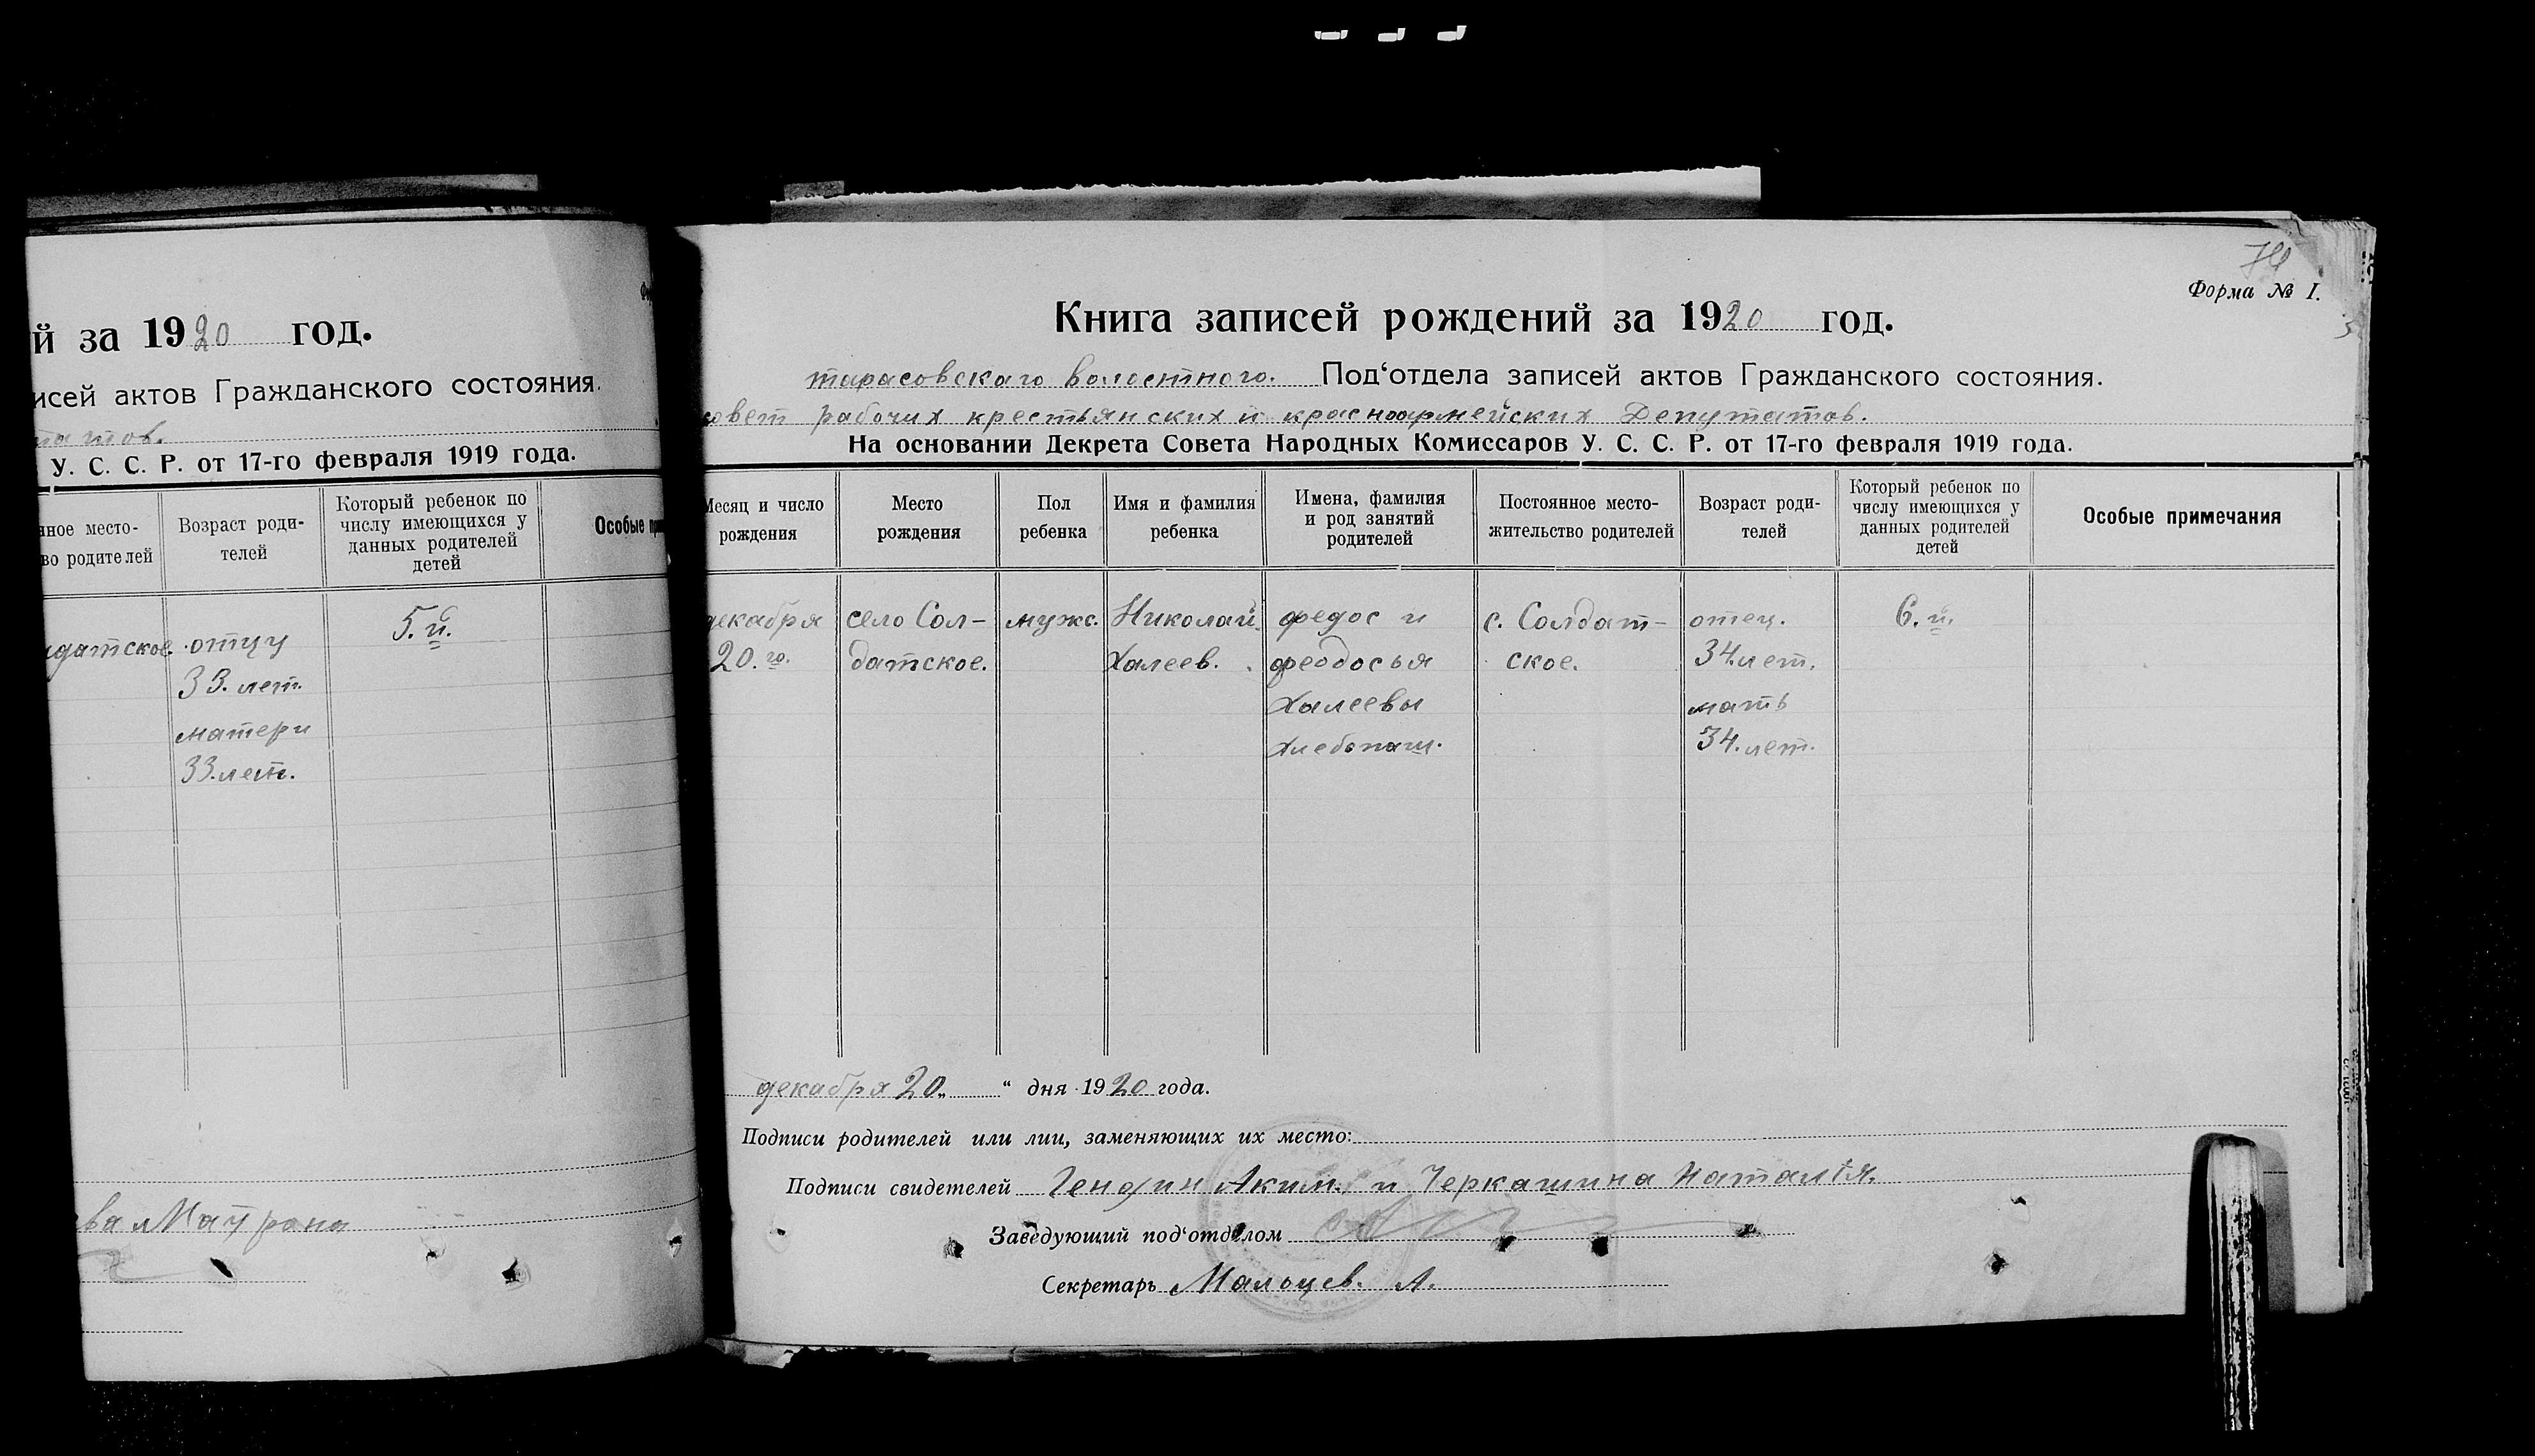 й за 1920 год.
исей актов Гражданского состояния.
татов.
У. С. С. Р. от 17-го февраля 1919 года.
нное место-
во родителей
Возраст роди-
телей
Который ребенок по
числу имеющихся у
данных родителей
детей
Особые
5.й.
датское. отцу
33. лет.
матери
33. лет.
ва Матрона
74
Форма № I.
Книга записей рождений за 1920 год.
тарасовскаго волостного. Под‘отдела записей актов Гражданского состояния.
совет рабочих крестьянских и красноармейских Депутатов.
На основании Декрета Совета Народных Комиссаров У. С. С. Р. от 17-го февраля 1919 года.
Месяц и число
рождения
Место
рождения
Пол
ребенка
Имя и фамилия
ребенка
Имена, фамилия
и род занятий
родителей
Постоянное место-
жительство родителей
Возраст роди-
телей
Который ребенок по
числу имеющихся у
данных родителей
детей
Особые примечания
декабря село Сол- мужс. Николай федос и с. Солдат- отец. 6.й.
20.го. датское. Халеев. феодосья ское. 34.лет.
Халеевы мать
хлебопаш. 34.лет.
декабря 20. “ дня 1920 года.
Подписи родителей или лиц, заменяющих их место:
Подписи свидетелей Аким. и Черкашина Наталія.
Заведующий под‘отделом
Секретарь Мальцев. А.